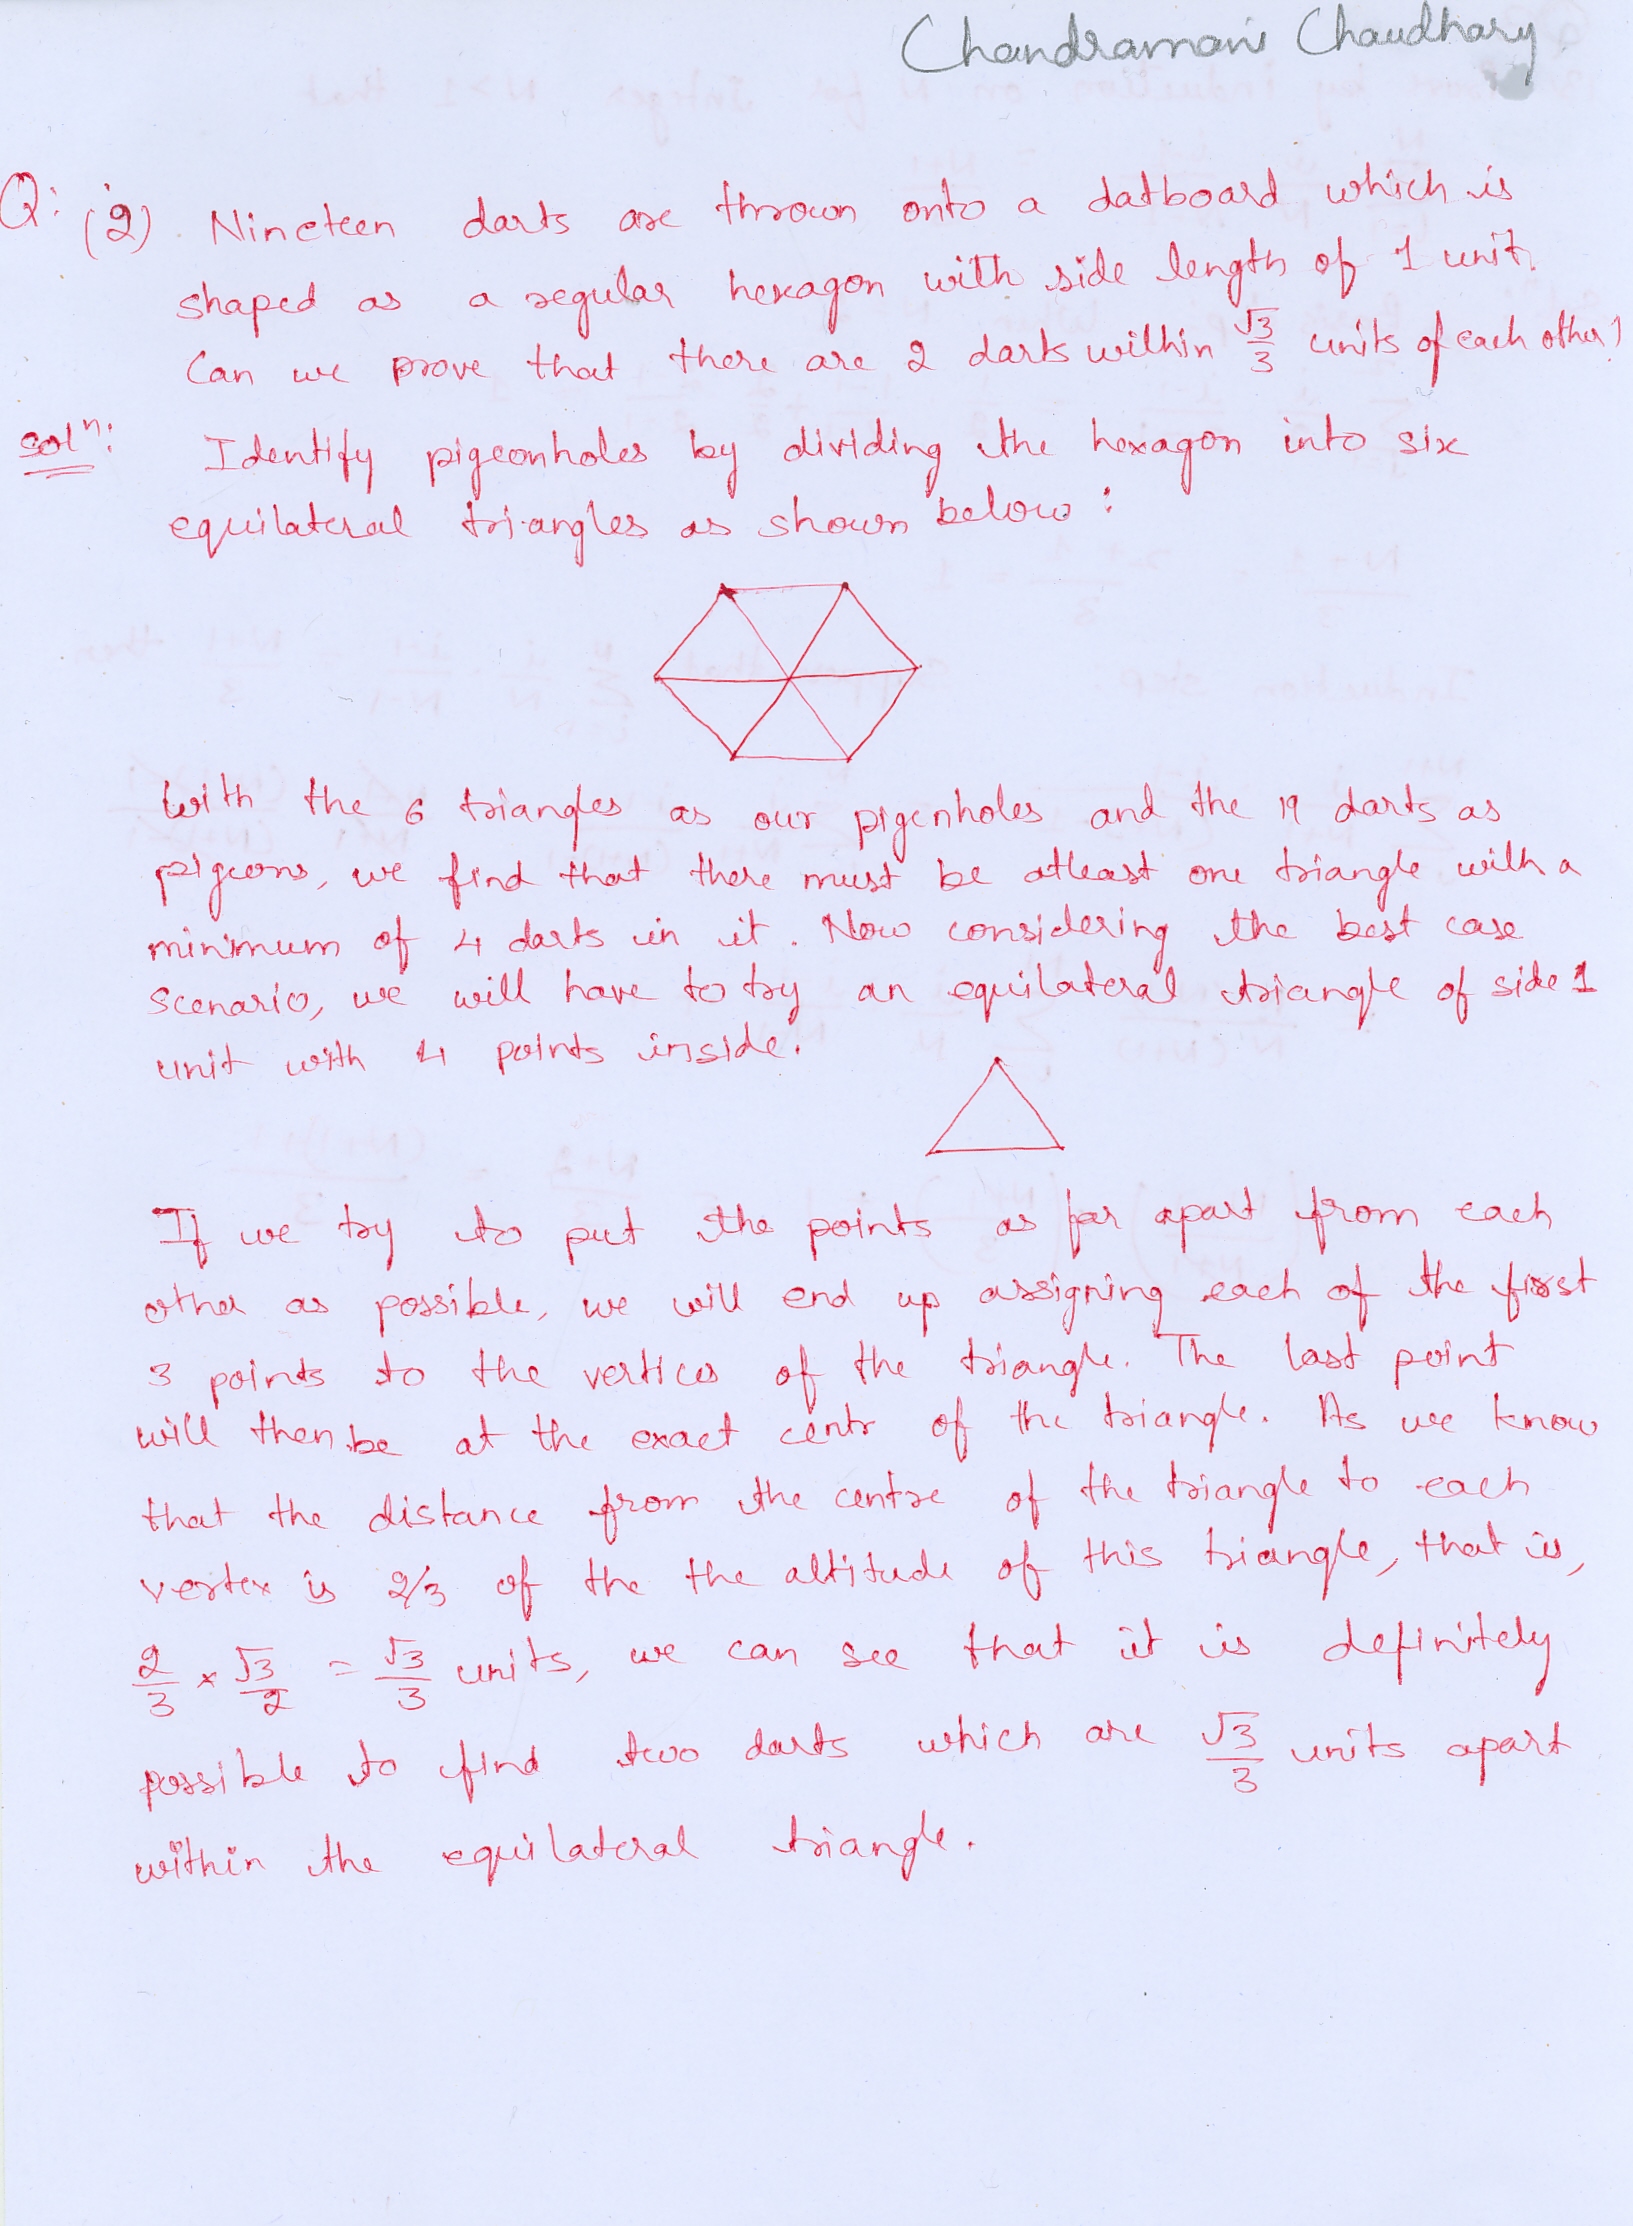 Chandramani Chaudhary
Q: (2). Nineteen darts are thrown onto a datboard which is
shaped as a regular hexagon with side length of 1 unit.
Can we prove that there are 2 darts within √3/3 units of each other?
solⁿ: Identify pigeonholes by dividing the hexagon into six
equilateral triangles as shown below:
With the 6 triangles as our pigenholes and the 19 darts as
pigeons, we find that there must be atleast one triangle with a
minimum of 4 darts in it. Now considering the best case
scenario, we will have to try an equilateral triangle of side 1
unit with 4 points inside.
If we try to put the points as far apart from each
other as possible, we will end up assigning each of the first
3 points to the vertices of the triangle. The last point
will then be at the exact centr of the triangle. As we know
that the distance from the centre of the triangle to each
vertex is 2/3 of the the altitude of this triangle, that is,
2/3 × √3/2 = √3/3 units, we can see that it is definitely
possible to find two darts which are √3/3 units apart
within the equilateral triangle.